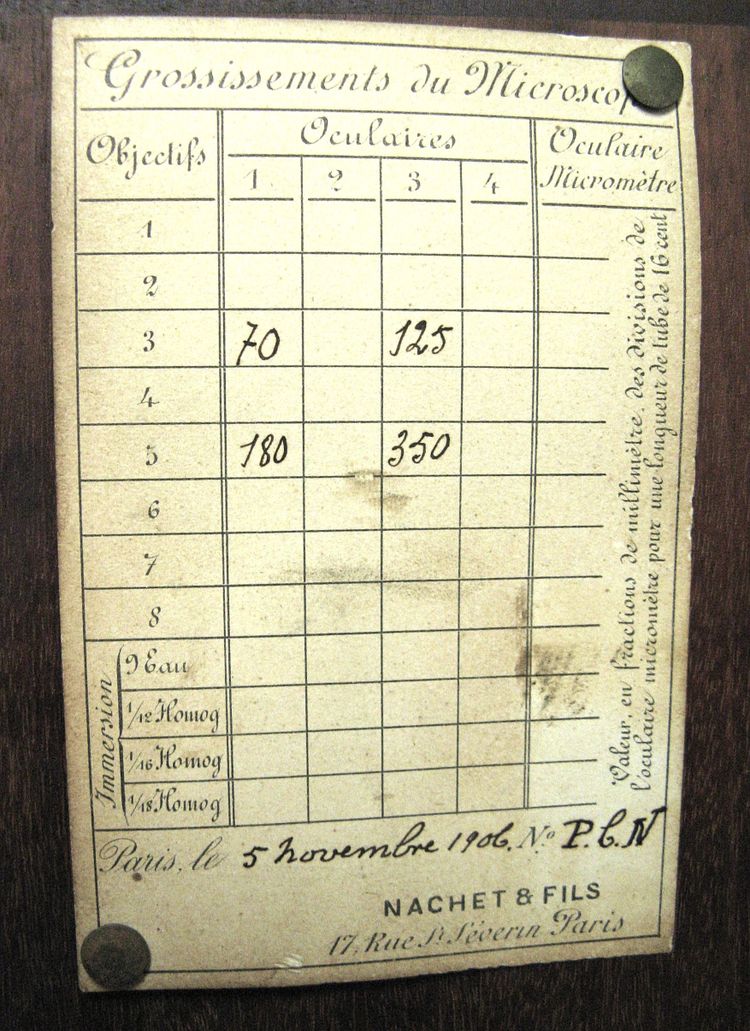 Grossissements du Microscop
Objectifs Oculaires Oculaire Micromètre
1 2 3 4
1
2
3 70 125
4
5 180 350
6
7
8
Immersion
9 Eau
1/12 Homog
1/16 Homog
1/18 Homog
Valeur, en fractions de millimètre, des divisions de
l'oculaire micromètre pour une longueur de tube de 16 cent
Paris, le 5 novembre 1906. No P.C.N
NACHET & FILS
17, Rue St Séverin Paris